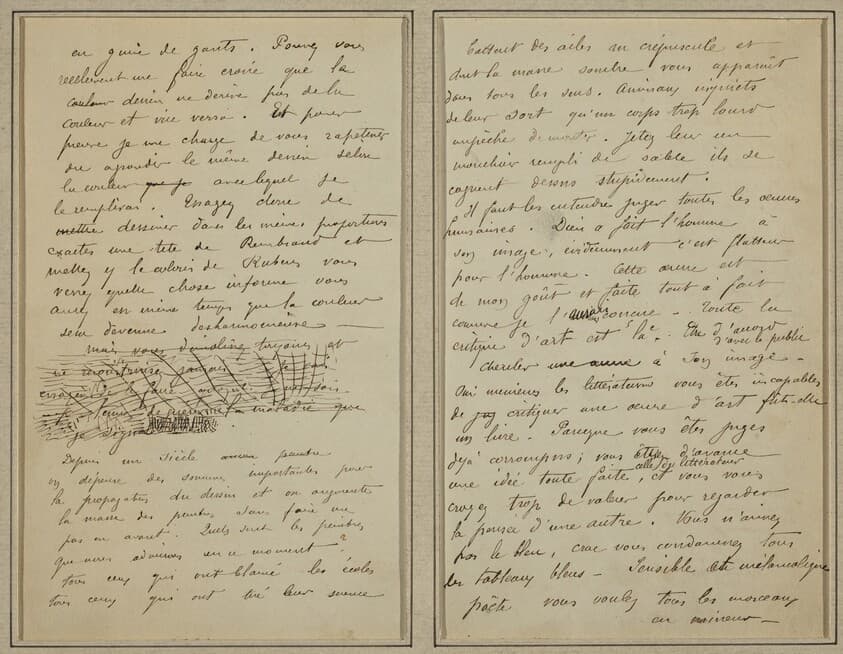 en guise de gants. Pouvez vous
réellement me faire croire que la
dessin ne dérive pas de la
couleur et vice versa. Et pour
preuve je me charge de vous rapetisser
ou agrandir le même dessin selon
la couleur que je avec lequel je
le remplirai. Essayez donc de
mettre dessiner dans les mêmes proportions
exactes une tête de Rembrand et
mettez y le coloris de Rubens vous
verrez quelle chose informe vous
aurez en même temps que la couleur
sera devenue desharmonieuse
mais vous et
de la maladie que
je signale
Depuis un Siècle
on dépense des sommes importantes pour
la propagation du dessin et on augmente
la masse des peintres sans faire un
pas en avant. Quels sont les peintres
que nous admirons en ce moment?
tous ceux qui ont blamé les écoles
tous ceux qui ont tiré leur science
battent des ailes au crépuscule et
dont la masse sombre vous apparait
dans tous les sens. Animaux inquiets
de leur sort qu'un corps trop lourd
empêche de monter. Jetez leur un
mouchoir rempli de sable ils se
cognent dessus stupidement.
Il faut les entendre juger toutes les œuvres
humaines. Dieu a fait l'homme à
son image, évidemment c'est flatteur
pour l'homme. Cette œuvre est
de mon goût et faite tout à fait
comme je l'aurais conçue - Toute la
critique d'art est là. Etre d'accord
avec le public
chercher une œuvre à son image -
Oui messieurs les littérateurs vous êtes incapables
de critiquer une œuvre d'art fût-elle
un livre. Parceque vous êtes juges
déjà corrompus; vous d'avance
une idée toute faite, celle du littérateur et vous vous
croyez trop de valeur pour regarder
la pensée d'une autre. Vous n'aimez
pas le bleu, car vous condamnez tous
les tableaux bleus - Sensible et mélancolique
poète vous voulez tous les morceaux
en mineur -